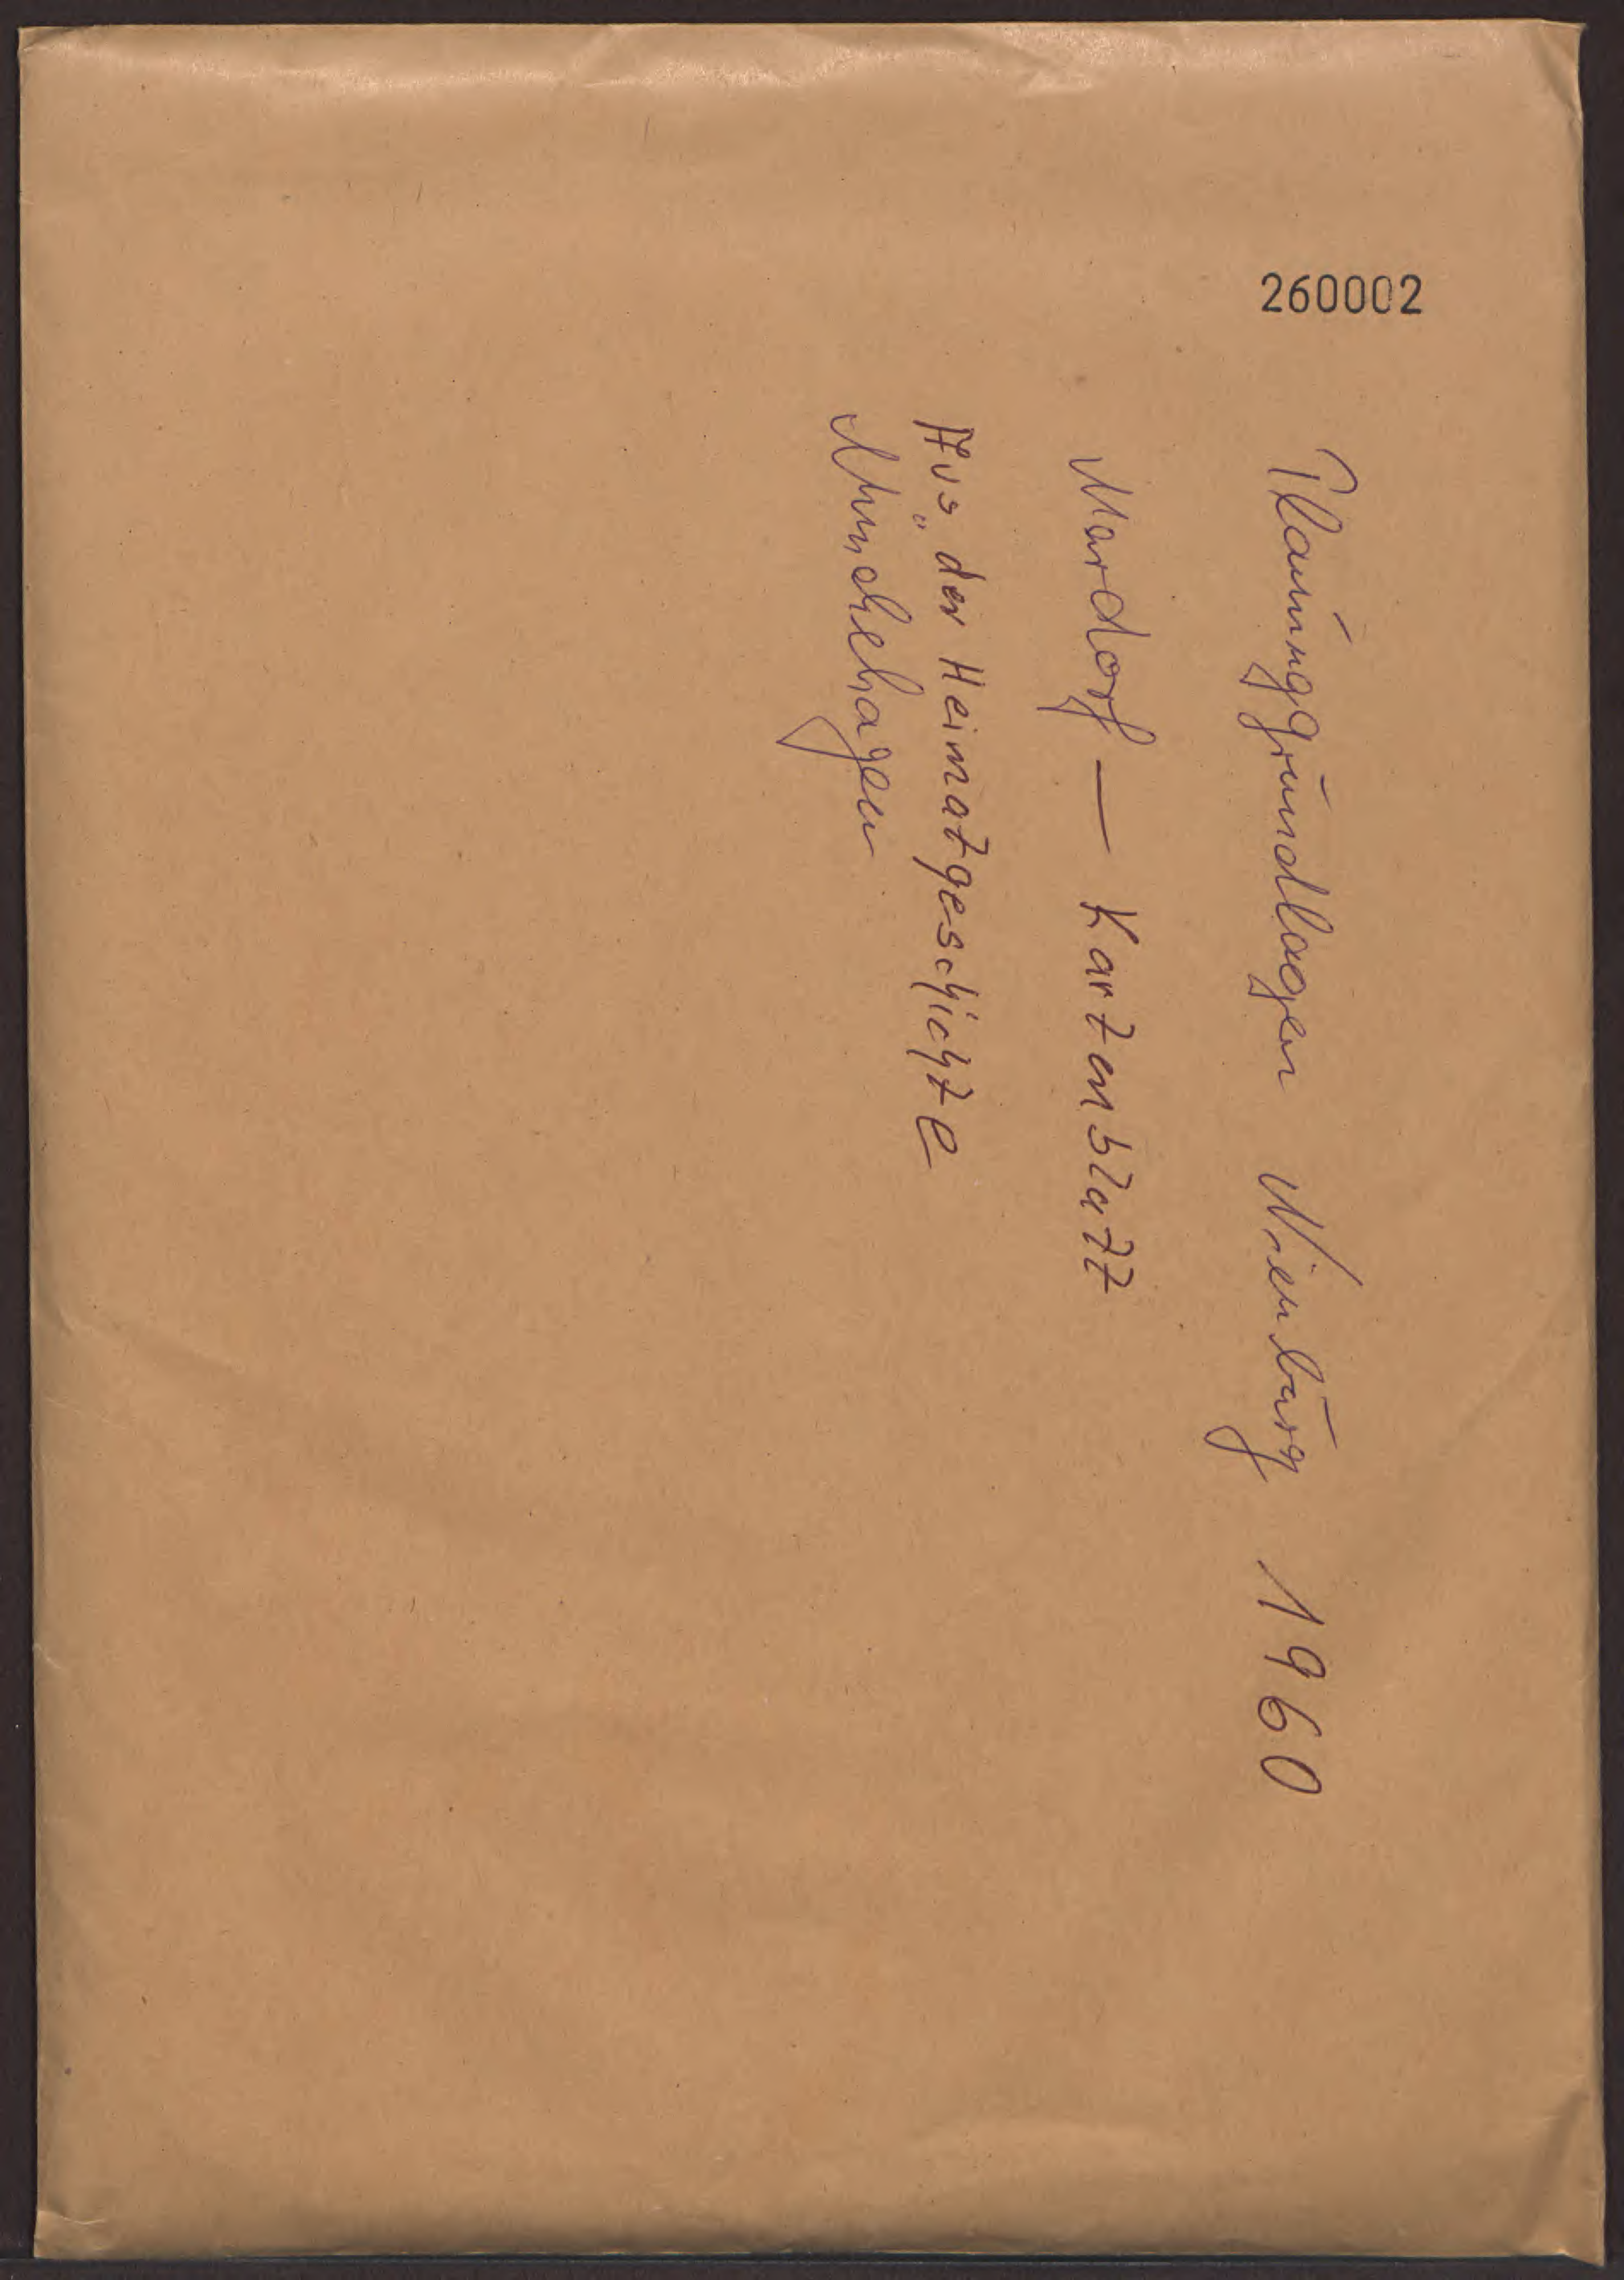 260002
Planunggrundlagen Nienburg 1960
Mardorf — Kartenblatt
Aus der Heimatgeschichte
Münchehagen